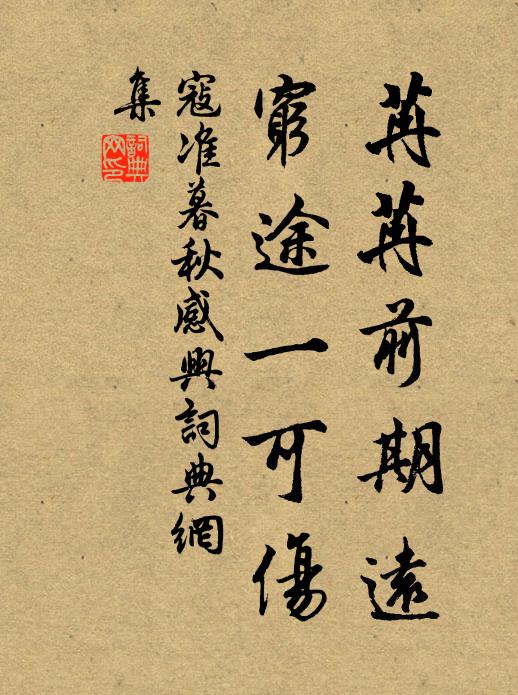 苒苒前期遠
窮途一可傷
寇准暮秋感興詞典網
集
詞典
网印